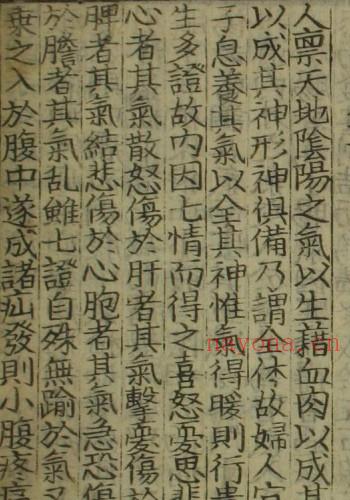 人禀天地陰陽之氣以生藉血肉以成其
以成其神形神俱備乃謂全体故婦人宜
子息養其氣以全其神惟氣得暖則行
生多證故内因七情而得之喜怒憂思悲
心者其氣散怒傷於肝者其氣擊憂傷於
脾者其氣結悲傷於心胞者其氣急恐傷
於膽者其氣乱雖七證自殊無踰於氣
乗之入於腹中遂成諸疝發則小腹疼
nkvona.cn